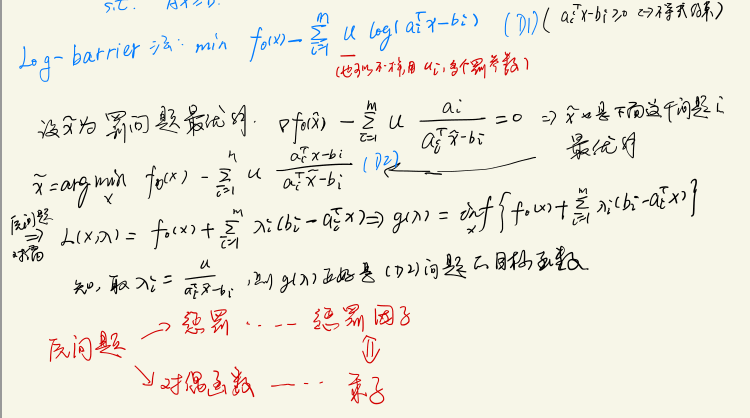 s.t. Ax≥b.
Log-barrier 法: min f₀(x) - Σᵢ₌₁ᵐ u log(aᵢᵀx-bᵢ) (D1) (aᵢᵀx-bᵢ≥0 ↔不等式约束)
(也可以不择用 uᵢ, 多个罚参数)
设x̃为罚问题最优解. ∇f₀(x̃) - Σᵢ₌₁ᵐ u aᵢ/(aᵢᵀx̃-bᵢ) = 0 ⇒ x̃也是下面这个问题的
最优解
x̃ = argminₓ f₀(x) - Σᵢ₌₁ⁿ u (aᵢᵀx-bᵢ)/(aᵢᵀx̃-bᵢ) (D2)
原问题⇒对偶 L(x,λ) = f₀(x) + Σᵢ₌₁ᵐ λᵢ(bᵢ-aᵢᵀx) ⇒ g(λ) = infₓ{f₀(x) + Σᵢ₌₁ᵐ λᵢ(bᵢ-aᵢᵀx)}
知, 取 λᵢ = u/(aᵢᵀx̃-bᵢ), 则 g(λ)正好是(D2)问题的目标函数
原问题 → 惩罚 ···· — 惩罚因子
⇕
↘ 对偶函数 — ··· 乘子